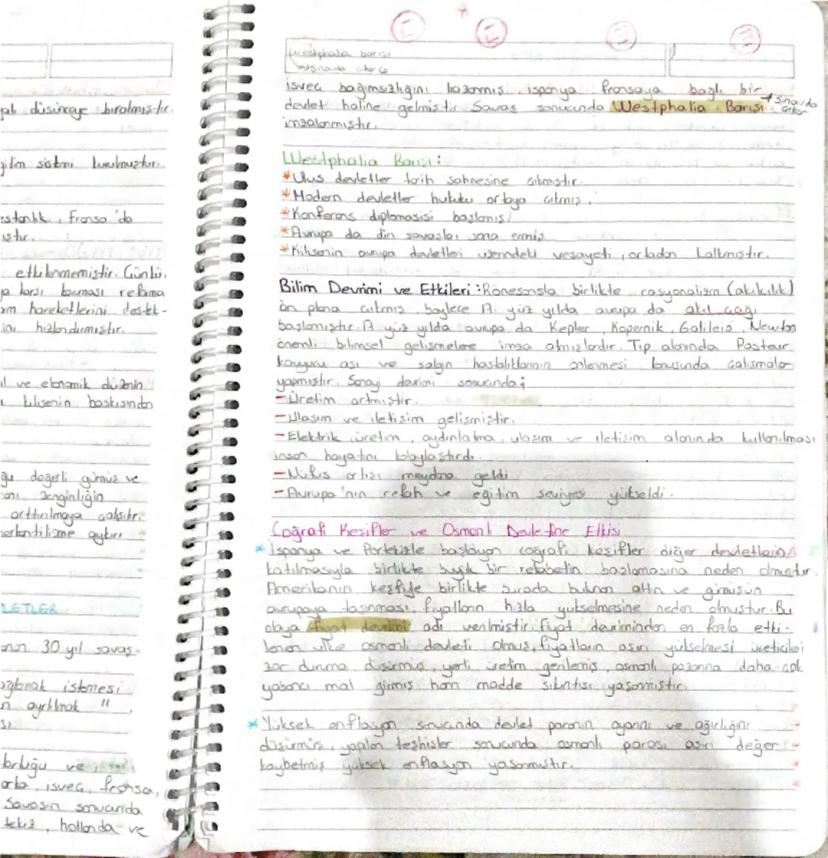 yatı düşünceye bıralmıştır.
eğitim sistemi kurulmuştur.
estanlık, Fransa 'da
ıştır.
etkilenmemiştir. Günkü,
karşı boıması reforma
hareketlerini destek-
hızlandırmıştır.
ve ekonomik düzenin
kilisenin baskısından
değerli gümüş ve
zenginliğin
arttırılmaya çalışılır.
LETLER
30 yıl savaş-
istemesi
ayrılmak "
ve
isveç, fransa,
Savaşın sonucunda
hollanda ve
Westphalia barışı
sınavda çıkar
isveç bağımsızlığını kazanmış, ispanya Fransaya bağlı bir
devlet haline gelmiştir. Savaş sonucunda Westphalia Barışı → Sınavda çıkar
imzalanmıştır.
Westphalia Barışı:
*Ulus devletler tarih sahnesine çıkmıştır.
*Modern devletler hukuku ortaya çıkmış.
*Konferans diplomasisi başlamış.
*Avrupa da din savaşları sona ermiş
*Kilisenin avrupa devletleri üzerindeki vesayeti ortadan kalkmıştır.
Bilim Devrimi ve Etkileri: Rönesansla birlikte rasyonalizm (akılcılık)
ön plana çıkmış böylece A. yüz yılda avrupa da akıl çağı
başlamıştır. A yüz yılda avrupa da Kepler, Kopernik, Galileia, Newton
önemli bilimsel gelişmelere imza atmışlardır. Tıp alanında Pasteur
kuduz aşı ve salgın hastalıkların önlenmesi konusunda çalışmalar
yapmıştır. Sanayi devrimi sonucunda;
-Üretim artmıştır.
-Ulaşım ve iletişim gelişmiştir.
-Elektrik üretim, aydınlatma, ulaşım ve iletişim alanında kullanılması
insan hayatını kolaylaştırdı.
-Nüfus artışı meydana geldi
-Avrupa'nın refah ve eğitim seviyesi yükseldi.
Coğrafi Keşifler ve Osmanlı Devletine Etkisi
*İspanya ve Portekizle başlayan coğrafi keşifler diğer devletlerin
katılmasıyla birlikte büyük bir rekabetin başlamasına neden olmuştur.
Amerikanın keşfiyle birlikte burada bulunan altın ve gümüşün
avrupaya taşınması, fiyatların hızla yükselmesine neden olmuştur. Bu
olaya fiyat devrimi adı verilmiştir. Fiyat devriminden en fazla etki-
lenen ülke osmanlı devleti olmuş, fiyatların aşırı yükselmesi üreticileri
zor duruma düşürmüş, yerli üretim gerilemiş, osmanlı pazarına daha çok
yabancı mal girmiş ham madde sıkıntısı yaşanmıştır.
*Yüksek enflasyon sonucunda devlet paranın ayarını ve ağırlığını
düşürmüş, yapılan teşhisler sonucunda osmanlı parası aşırı değer
kaybetmiş yüksek enflasyon yaşanmıştır.